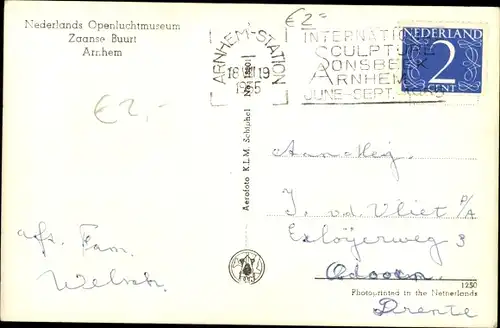 Nederlands Openluchtmuseum
Zaanse Buurt
Arnhem
€2=
ARNHEM-STATION
18 VII 19
1955
INTERNATION
SCULPTURE
SONSBEEK
ARNHEM
JUNE-SEPT. 1955
NEDERLAND
2
CENT
€2,-
Aan Heg.
J. v.d. Vliet P/A
Exlöyerweg 3
Odoorn.
Drente
afz. Fam.
Aerofoto K.L.M. Schiphol
1250
Photoprinted in the Netherlands